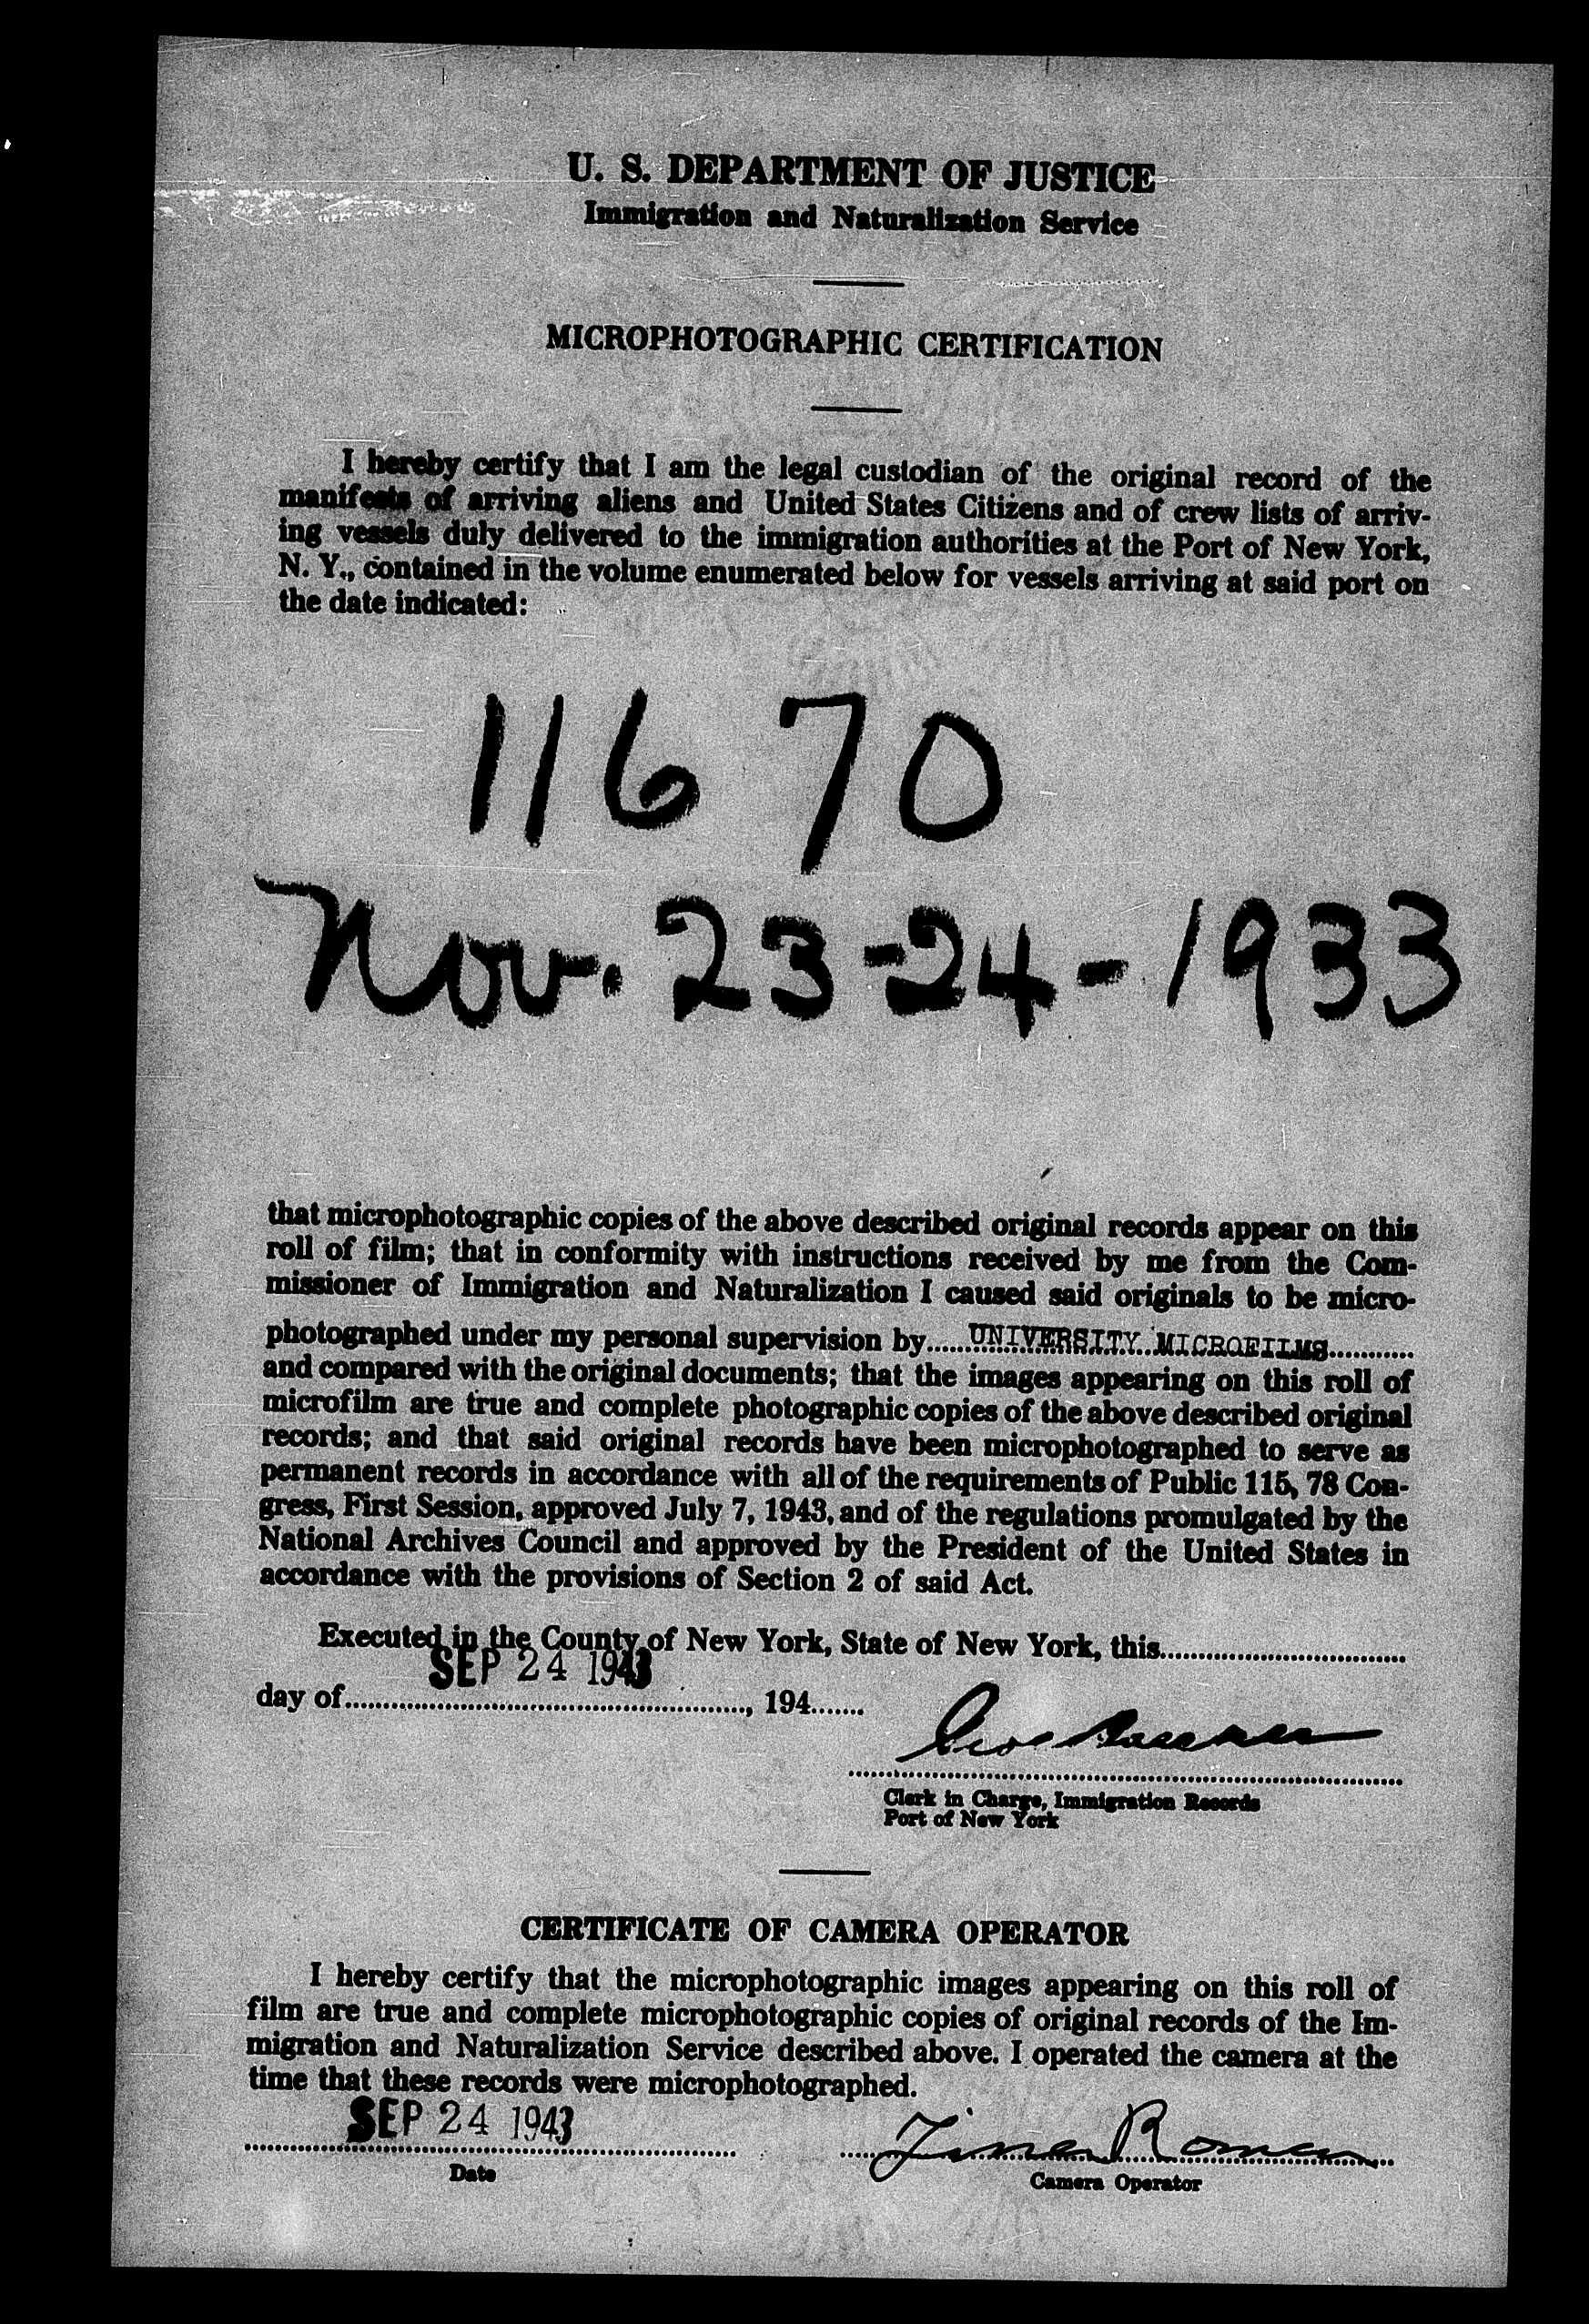 U. S. DEPARTMENT OF JUSTICE
Immigration and Naturalization Service
MICROPHOTOGRAPHIC CERTIFICATION
I hereby certify that I am the legal custodian of the original record of the
manifests of arriving aliens and United States Citizens and of crew lists of arriv-
ing vessels duly delivered to the immigration authorities at the Port of New York,
N. Y., contained in the volume enumerated below for vessels arriving at said port on
the date indicated:
11670
Nov. 23-24-1933
that microphotographic copies of the above described original records appear on this
roll of film; that in conformity with instructions received by me from the Com-
missioner of Immigration and Naturalization I caused said originals to be micro-
photographed under my personal supervision by......UNIVERSITY MICROFILMS............
and compared with the original documents; that the images appearing on this roll of
microfilm are true and complete photographic copies of the above described original
records; and that said original records have been microphotographed to serve as
permanent records in accordance with all of the requirements of Public 115, 78 Con-
gress, First Session, approved July 7, 1943, and of the regulations promulgated by the
National Archives Council and approved by the President of the United States in
accordance with the provisions of Section 2 of said Act.
Executed in the County of New York, State of New York, this................................
SEP 24 1943
day of...................................................., 194.......
Clerk in Charge, Immigration Records
Port of New York
CERTIFICATE OF CAMERA OPERATOR
I hereby certify that the microphotographic images appearing on this roll of
film are true and complete microphotographic copies of original records of the Im-
migration and Naturalization Service described above. I operated the camera at the
time that these records were microphotographed.
SEP 24 1943
Date
Camera Operator